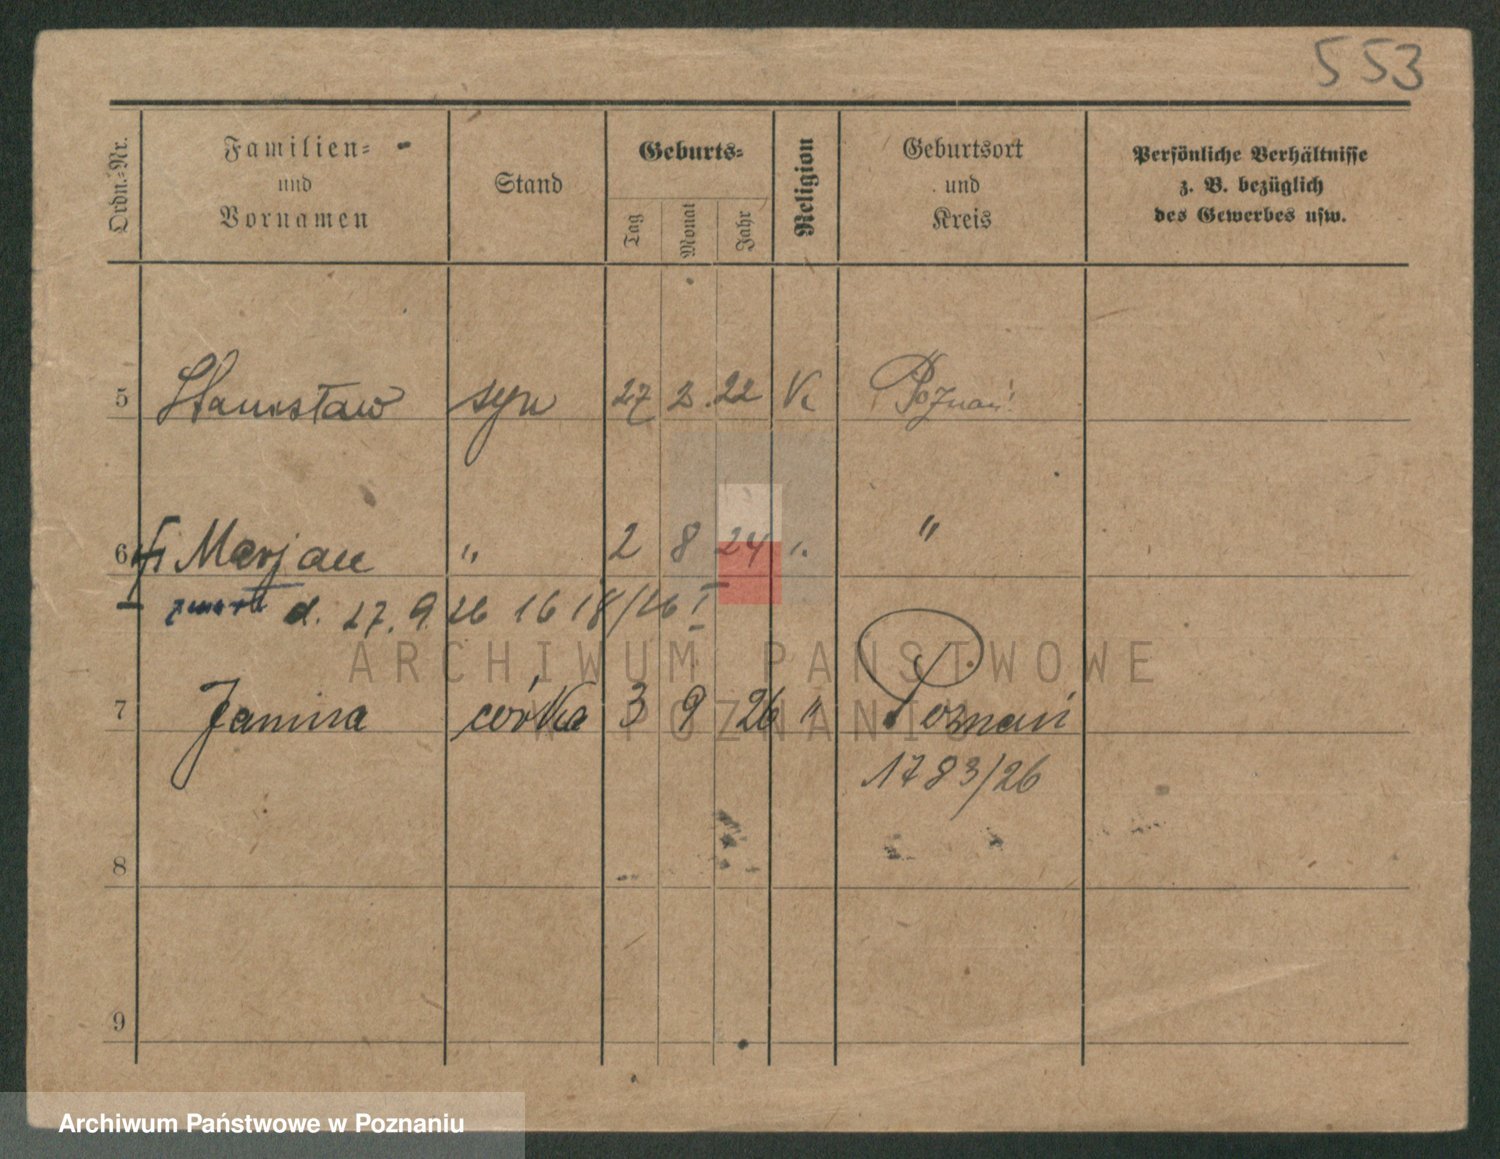 553
Ordn.-Nr. Familien- und Vornamen Stand Geburts- Tag Monat Jahr Religion Geburtsort und Kreis Persönliche Verhältnisse z. B. bezüglich des Gewerbes usw.
5 Stanisław syn 27 2. 22 K Poznań
6 Marjan " 2 8 24 " "
zmarł d. 27. 9. 26 1618/26 I
7 Janina córka 3 9 26 " Poznań
1783/26
8
9
ARCHIWUM PAŃSTWOWE
W POZNANIU
Archiwum Państwowe w Poznaniu